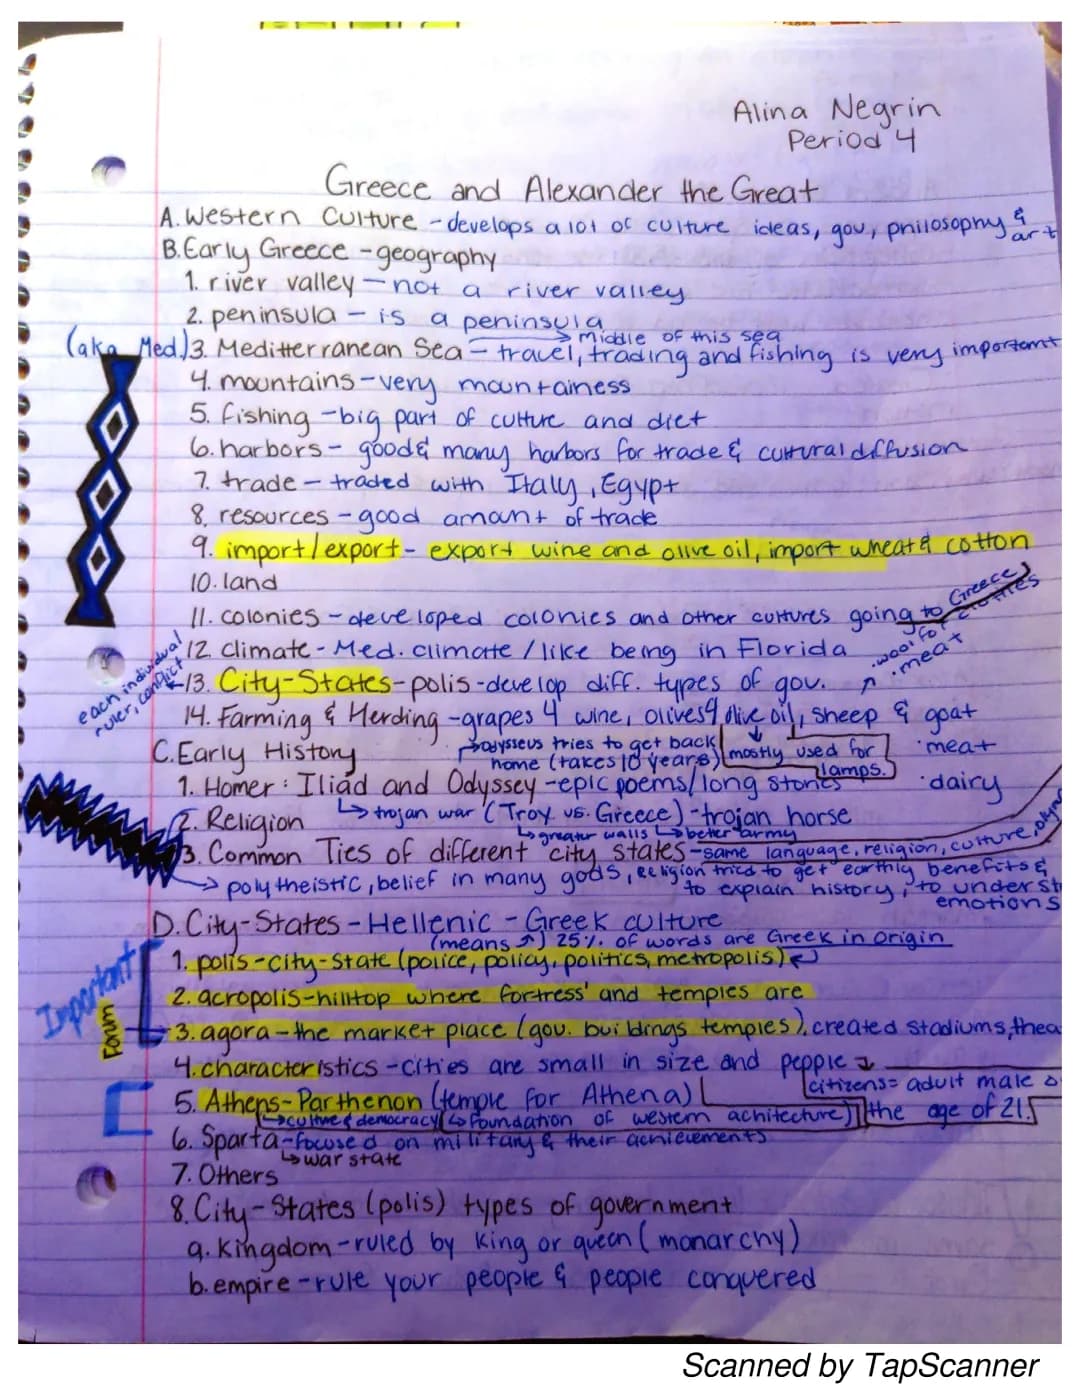 Alina Negrin
Period 4
Greece and Alexander the Great
A. Western Culture - develops a lot of culture ideas, gov, philosophy & art
B. Early Greece - geography
1. river valley - not a river valley
2. peninsula - is a peninsula
→ middle of this sea
(aka Med.) 3. Meditterranean Sea - travel, trading and fishing is very important
4. mountains - very mountainess
5. fishing - big part of culture and diet
6. harbors - good & many harbors for trade & cultural diffusion
7. trade - traded with Italy, Egypt
8. resources - good amount of trade
9. import/export - export wine and olive oil, import wheat & cotton
10. land
11. colonies - developed colonies and other cultures going to Greece
12. climate - Med. climate / like being in Florida
· wool for clothes
· meat
each individual ruler, conflict
13. City-States - polis - develop diff. types of gov.
14. Farming & Herding - grapes 4 wine, olives 4 olive oil, sheep & goat
· meat
· dairy
mostly used for lamps.
C. Early History
→ odysseus tries to get back home (takes 10 years)
1. Homer: Iliad and Odyssey - epic poems/long stories
↳ trojan war (Troy vs. Greece) - trojan horse
↳ greater walls ↳ better army
2. Religion
3. Common Ties of different city states - same language, religion, culture,
→ polytheistic, belief in many gods, Religion tried to get earthly benefits &
to explain history, to
emotions
D. City-States - Hellenic - Greek culture
(means ↗) 25% of words are Greek in origin
Important
1. polis - city-state (police, policy, politics, metropolis)
2. acropolis - hilltop where fortress' and temples are
Forum
3. agora - the market place (gov. buildings temples), created stadiums,
4. characteristics - cities are small in size and people
citizens = adult male
the age of 21.
5. Athens - Parthenon (temple for Athena)
↳ culture & democracy (↳ foundation of western achitecture)
6. Sparta - focused on military & their achievements
↳ war state
7. Others
8. City-States (polis) types of government
a. Kingdom - ruled by king or queen (monarchy)
b. empire - rule your people & people conquered
Scanned by TapScanner